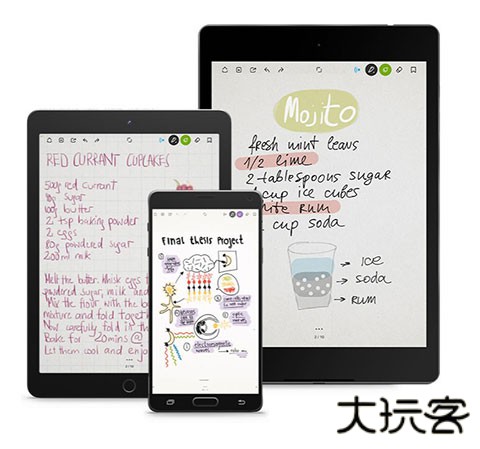 Mojito
fresh mint leaves
1/2 lime
2 tablespoons sugar
cup ice cubes
white rum
cup soda
ICE
SODA
RUM
RED CURRANT CUPCAKES
50g red currant
sugar
100g butter
2 tsp baking powder
2 eggs
80g powdered sugar
200ml milk
Melt the butter. Whisk eggs
powdered sugar, milk and
Mix the flour with the
mixture and fold
Now carefully fold in the
Bake for ~20mins @
Let them cool and enjoy
Final thesis Project
electromagnetic
大玩客